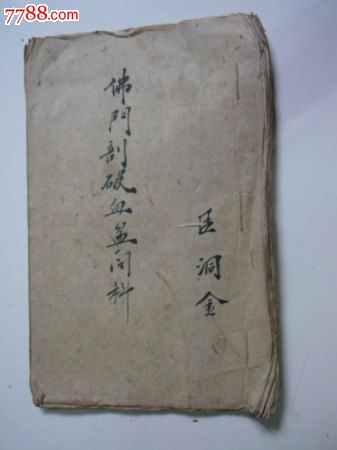 7788.com
佛門剖破血盆問科
匡洞金